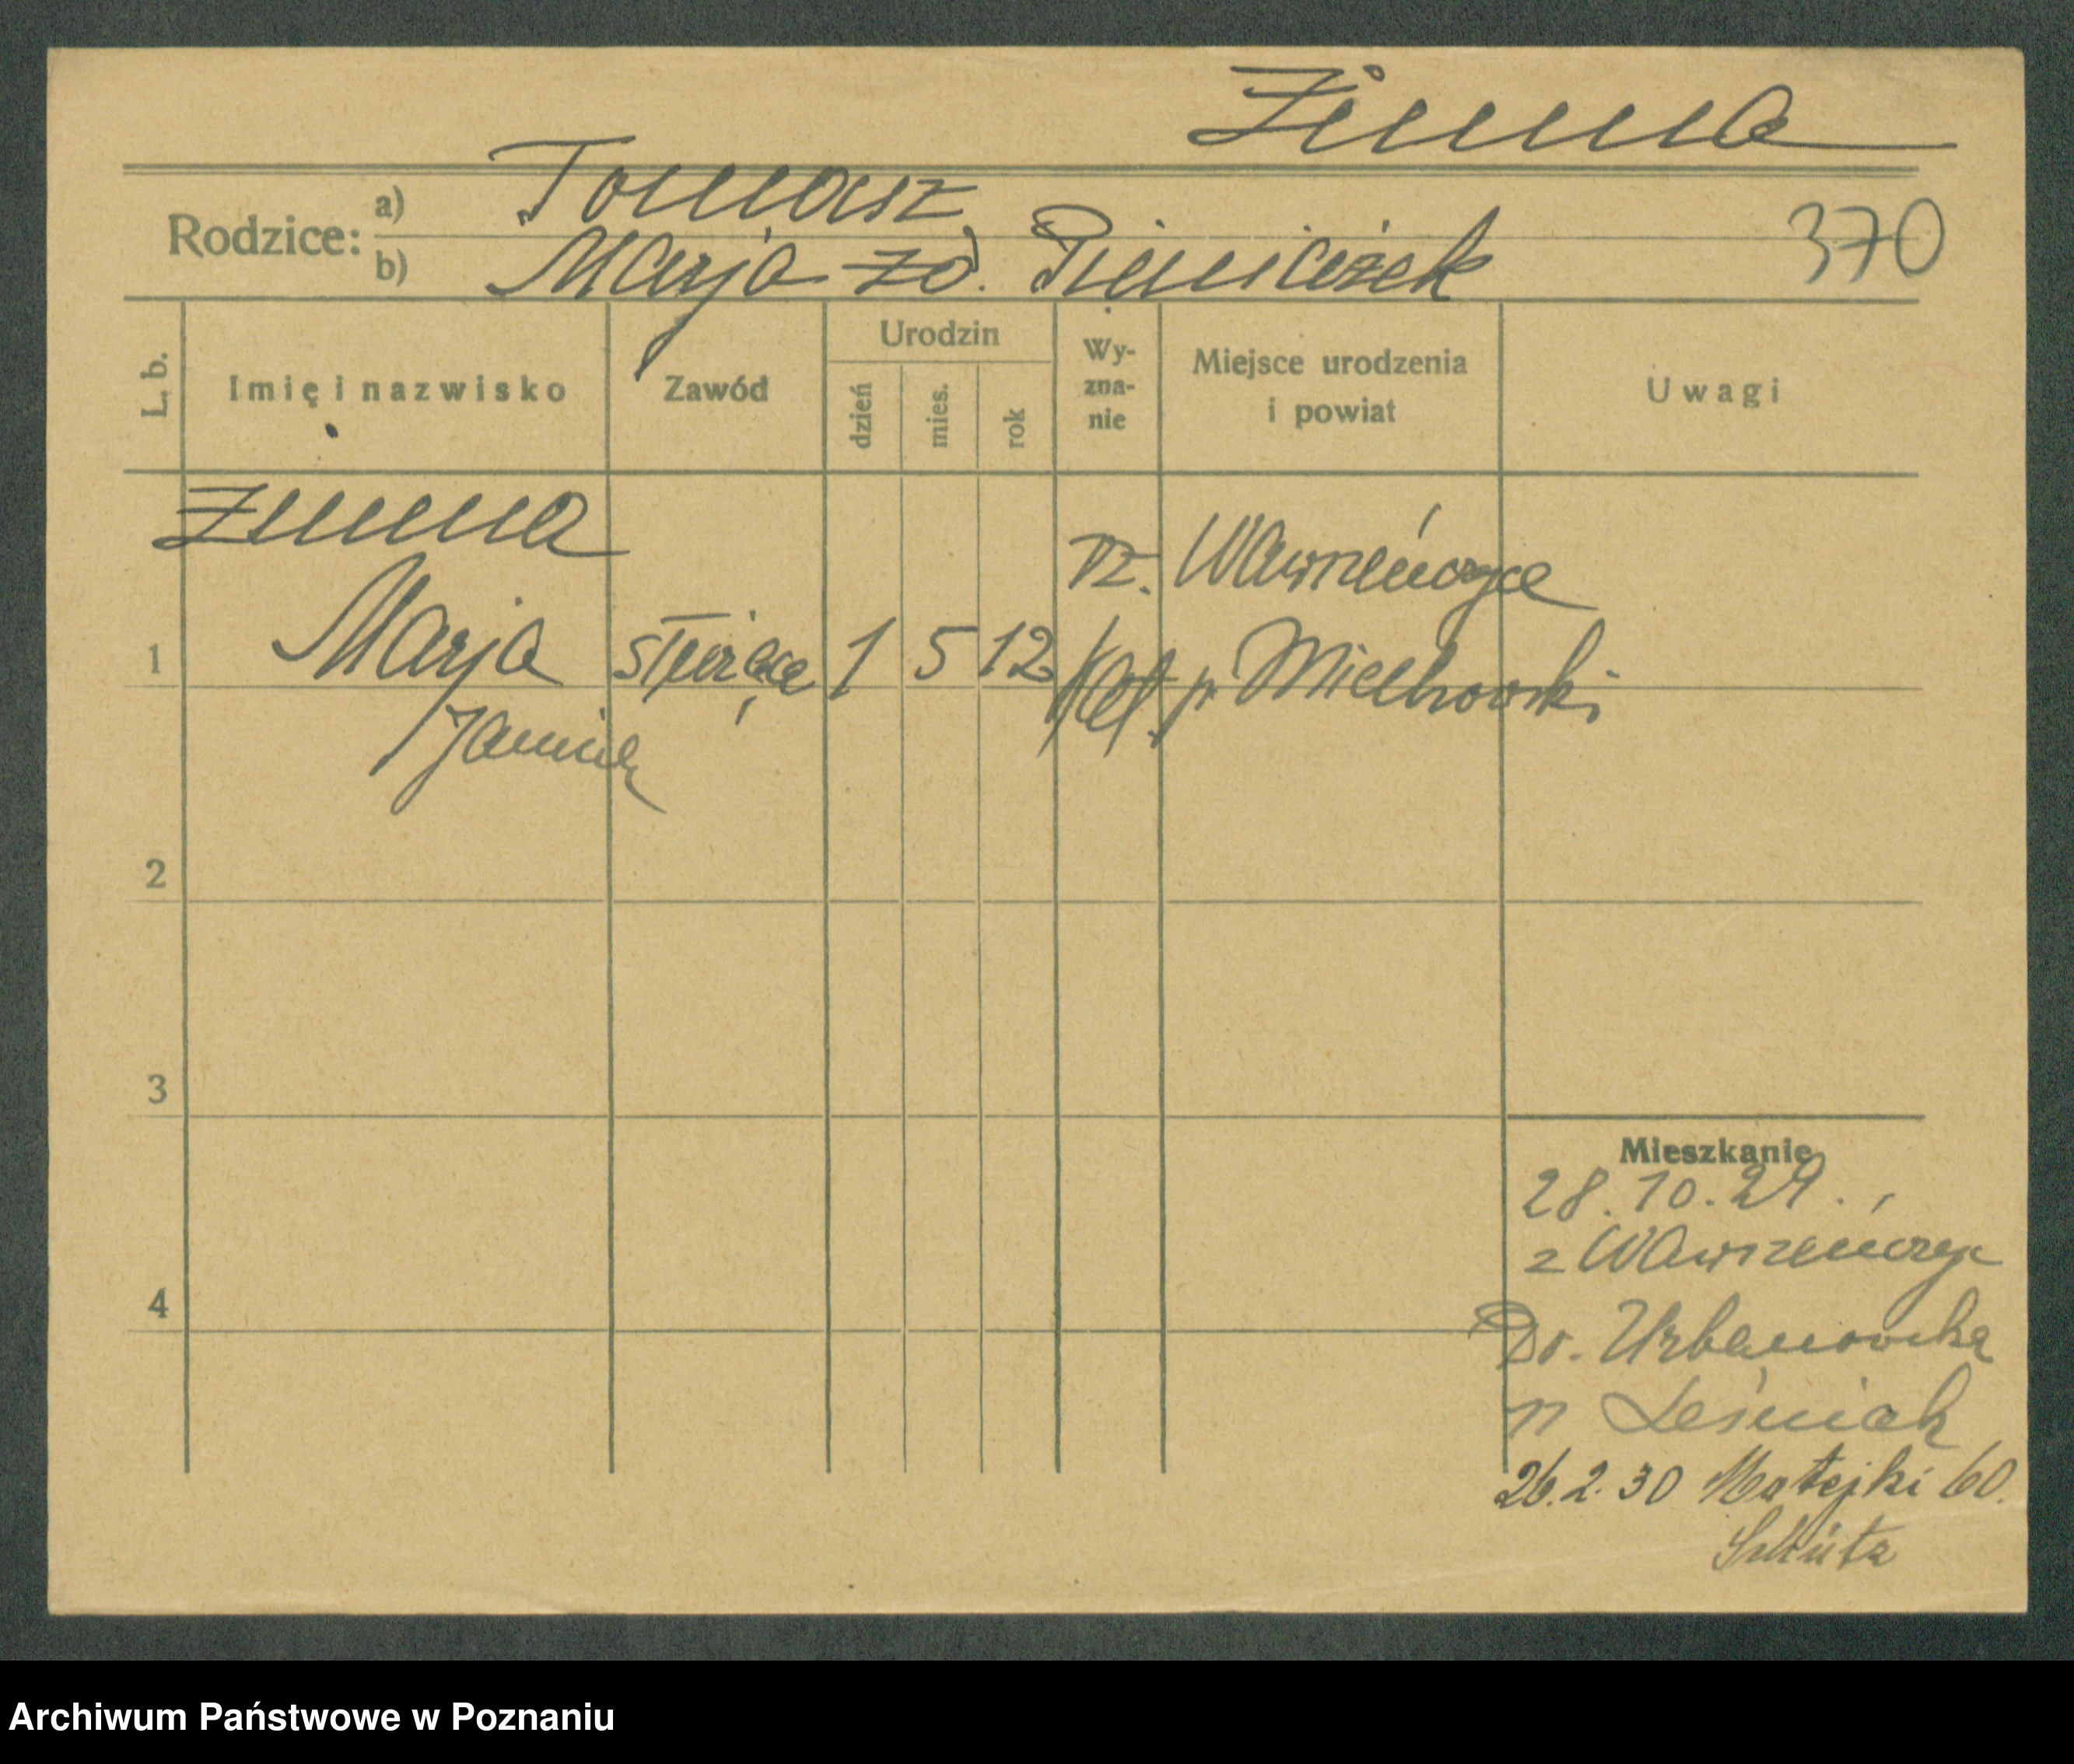 Zimna
Rodzice:
a) Tomasz
b) Marja zd. Pieniążek
370
L. b.
Imię i nazwisko
Zawód
Urodzin
dzień
mies.
rok
Wy-
zna-
nie
Miejsce urodzenia
i powiat
Uwagi
Zimna
rz. Wawrzeńczyce
1 Marja służąca 1 5 12 kat p. Miechowski
Janina
2
3
4
Mieszkanie
28.10.29.
z Wawrzeńczyc
Dr. Urbanowska
n Leśniak
26.2.30 Matejki 60.
Schütz
Archiwum Państwowe w Poznaniu